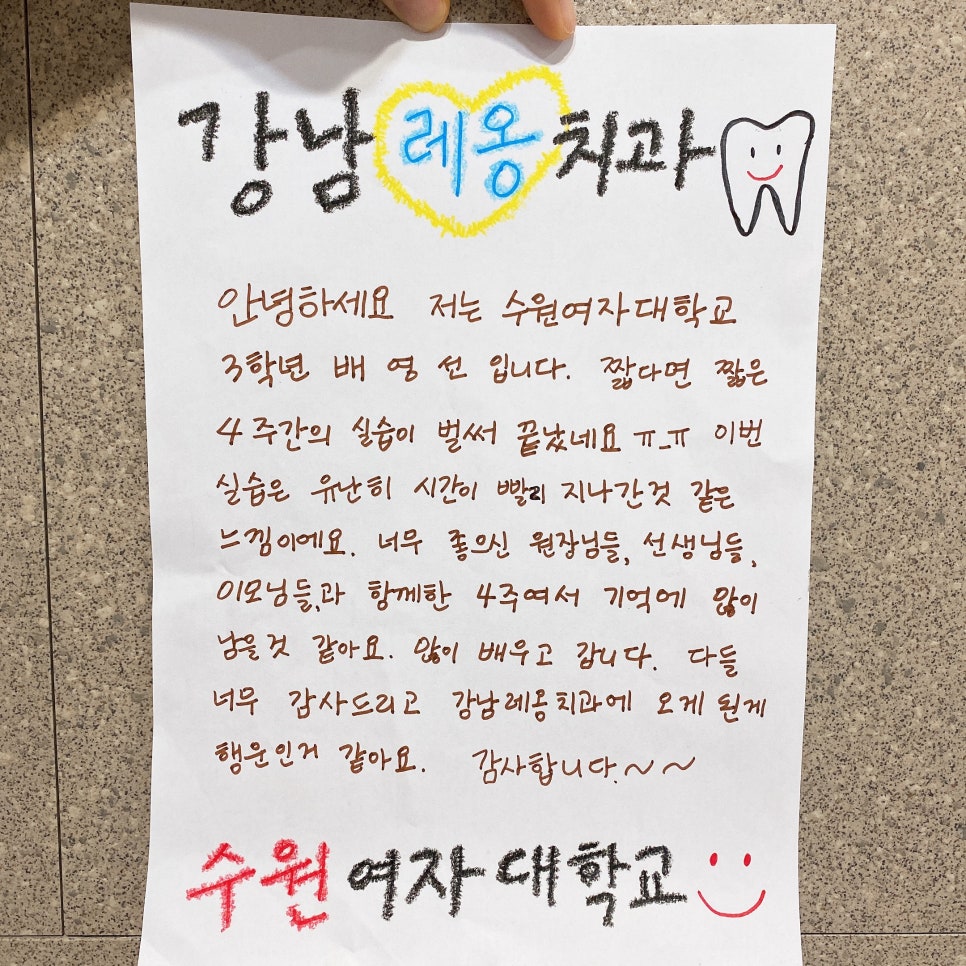 강남 레옹 치과
안녕하세요 저는 수원여자대학교
3학년 배 영 선 입니다. 짧다면 짧은
4주간의 실습이 벌써 끝났네요 ㅠ_ㅠ 이번
실습은 유난히 시간이 빨리 지나간것 같은
느낌이에요. 너무 좋으신 원장님들, 선생님들,
이모님들,과 함께한 4주여서 기억에 많이
남을것 같아요. 많이 배우고 갑니다. 다들
너무 감사드리고 강남레옹치과에 오게 된게
행운인거 같아요. 감사합니다.~~
수원여자대학교